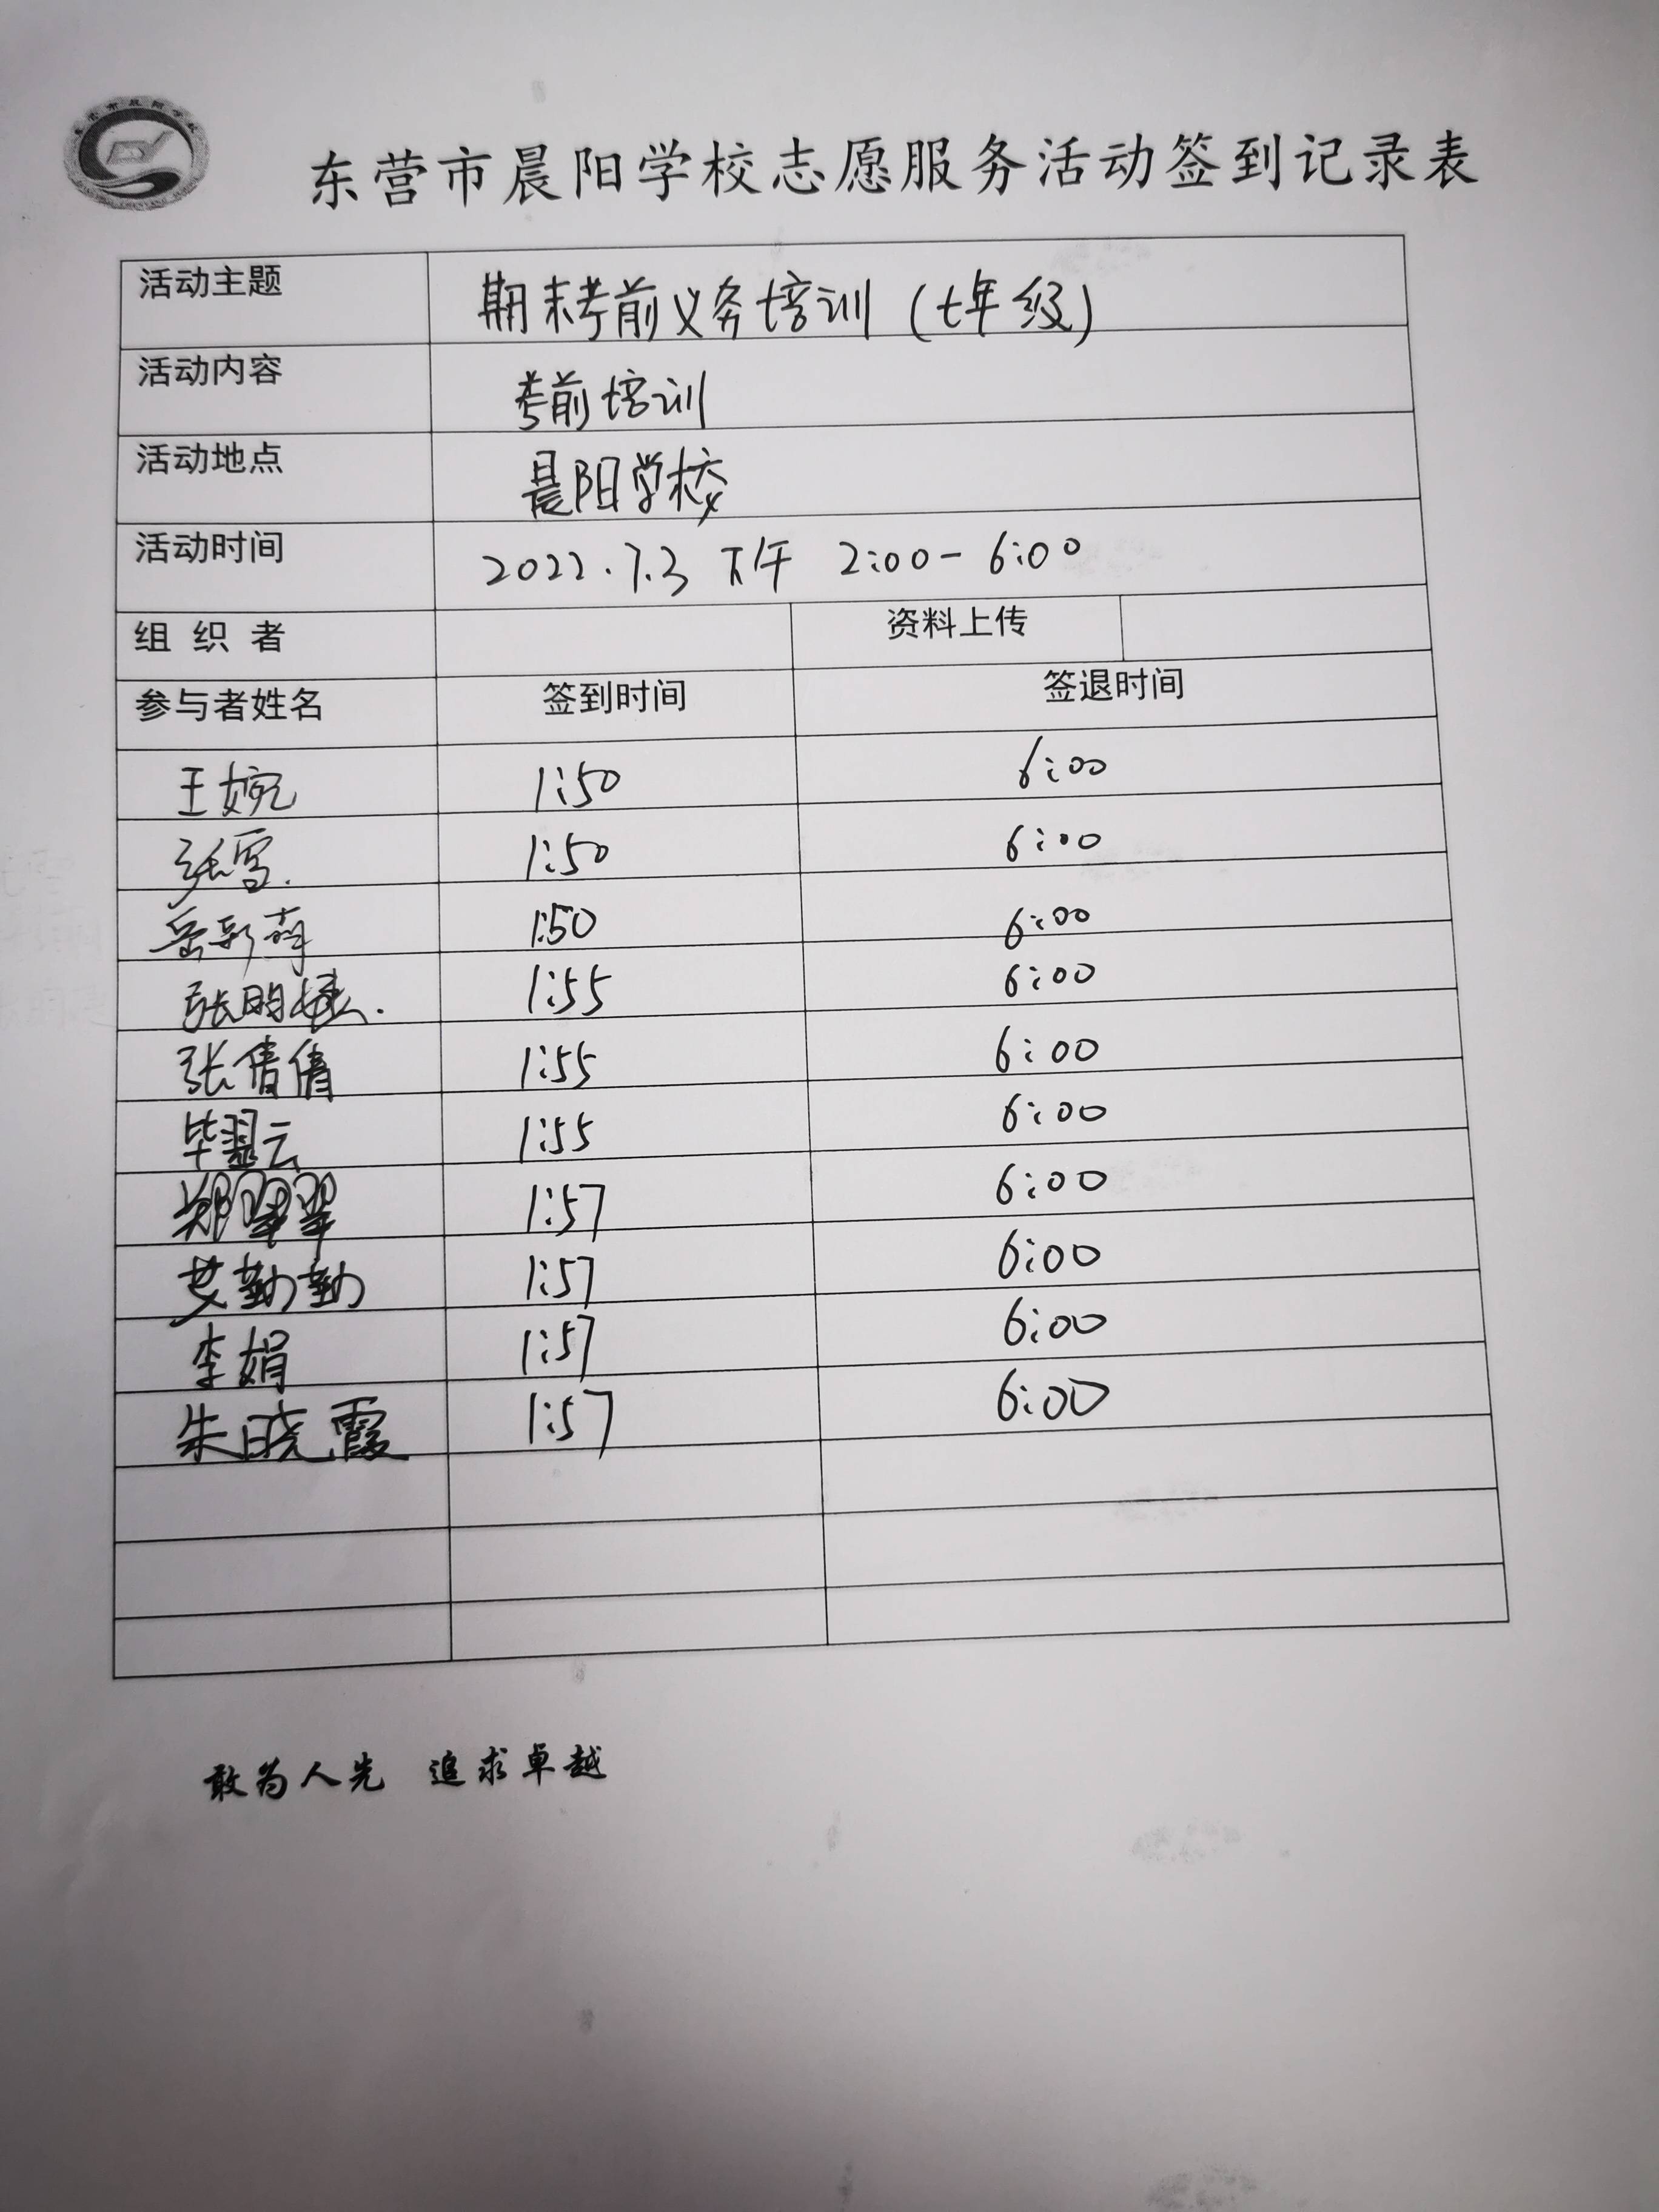 东营市晨阳学校志愿服务活动签到记录表
活动主题 期末考前义务培训(七年级)
活动内容 考前培训
活动地点 晨阳学校
活动时间 2022.7.3 下午 2:00-6:00
组 织 者 资料上传
参与者姓名 签到时间 签退时间
王婉 1:50 6:00
张雪. 1:50 6:00
岳彩萌 1:50 6:00
张明 1:55 6:00
张倩倩 1:55 6:00
毕翠云 1:55 6:00
郑翠翠 1:57 6:00
艾勤勤 1:57 6:00
李娟 1:57 6:00
朱晓霞 1:57 6:00
敢为人先 追求卓越